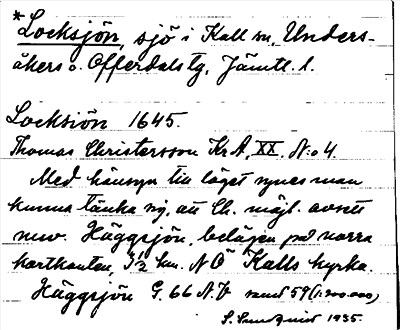 *Locksjön, sjö i Kall sn, Unders-
åkers o. Offerdals tg, Jämtl. l.
Locksiön 1645.
Thomas Christersson KrA, XX, N:o 4.
Med hänsyn till läget synes man
kunna tänka sig, att Ch. möjl. avsett
nuv. Häggsjön, belägen på norra
kartkanten, 3½ km. NÖ Kalls kyrka.
Häggsjön G. 66 N.V samt 59 (1:200.000)
1935.